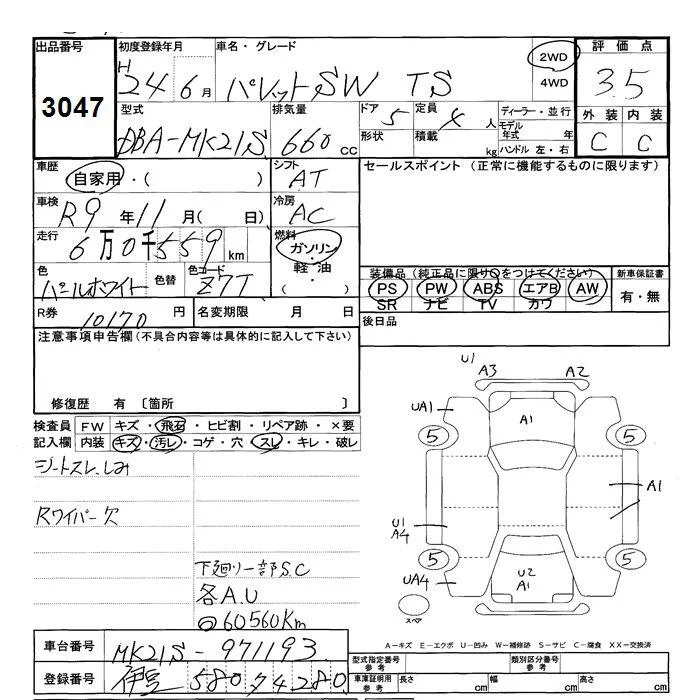 出品番号 初度登録年月 車名・グレード 2WD 評価点
3047 H 24 6月 パレットSW TS 4WD 3.5
型式 排気量 ドア 5 定員 4人 ディーラー・並行 外装 内装
DBA-MK21S 660cc 形状 積載 kg モデル年式 年 C C
ハンドル 左・右
車歴 自家用・( ) シフト AT セールスポイント (正常に機能するものに限ります)
車検 R9年11月( 日) 冷房 AC
走行 6万0千559km 燃料 ガソリン・軽油・( )
色 パールホワイト 色替 色コード Z7T 装備品 (純正品に限り○をつけてください) 新車保証書
PS PW ABS エアB AW 有・無
SR ナビ TV カワ
R券 10170円 名変期限 月 日 後日品
注意事項申告欄(不具合内容等は具体的に記入して下さい)
修復歴 有 〔箇所 〕
検査員 FW キズ・飛石・ヒビ割・リペア跡・×要
記入欄 内装 キズ・汚レ・コゲ・穴・スレ・キレ・破レ
シートスレ、しみ
Rワイパー欠
下廻り一部S.C
各A.U
60560Km
U1
A3 A2
UA1 A1
5 5
A1
U1
A4
5 5
UA4 U2
A1
スペア
A-キズ E-エクボ U-凹み W-補修跡 S-サビ C-腐食 XX-交換済
車台番号 MK21S-971193 型式指定番号 参考 類別区分番号 参考
登録番号 伊豆 580 タ 4280 車庫証明用 参考 長さ cm 幅 cm 高さ cm